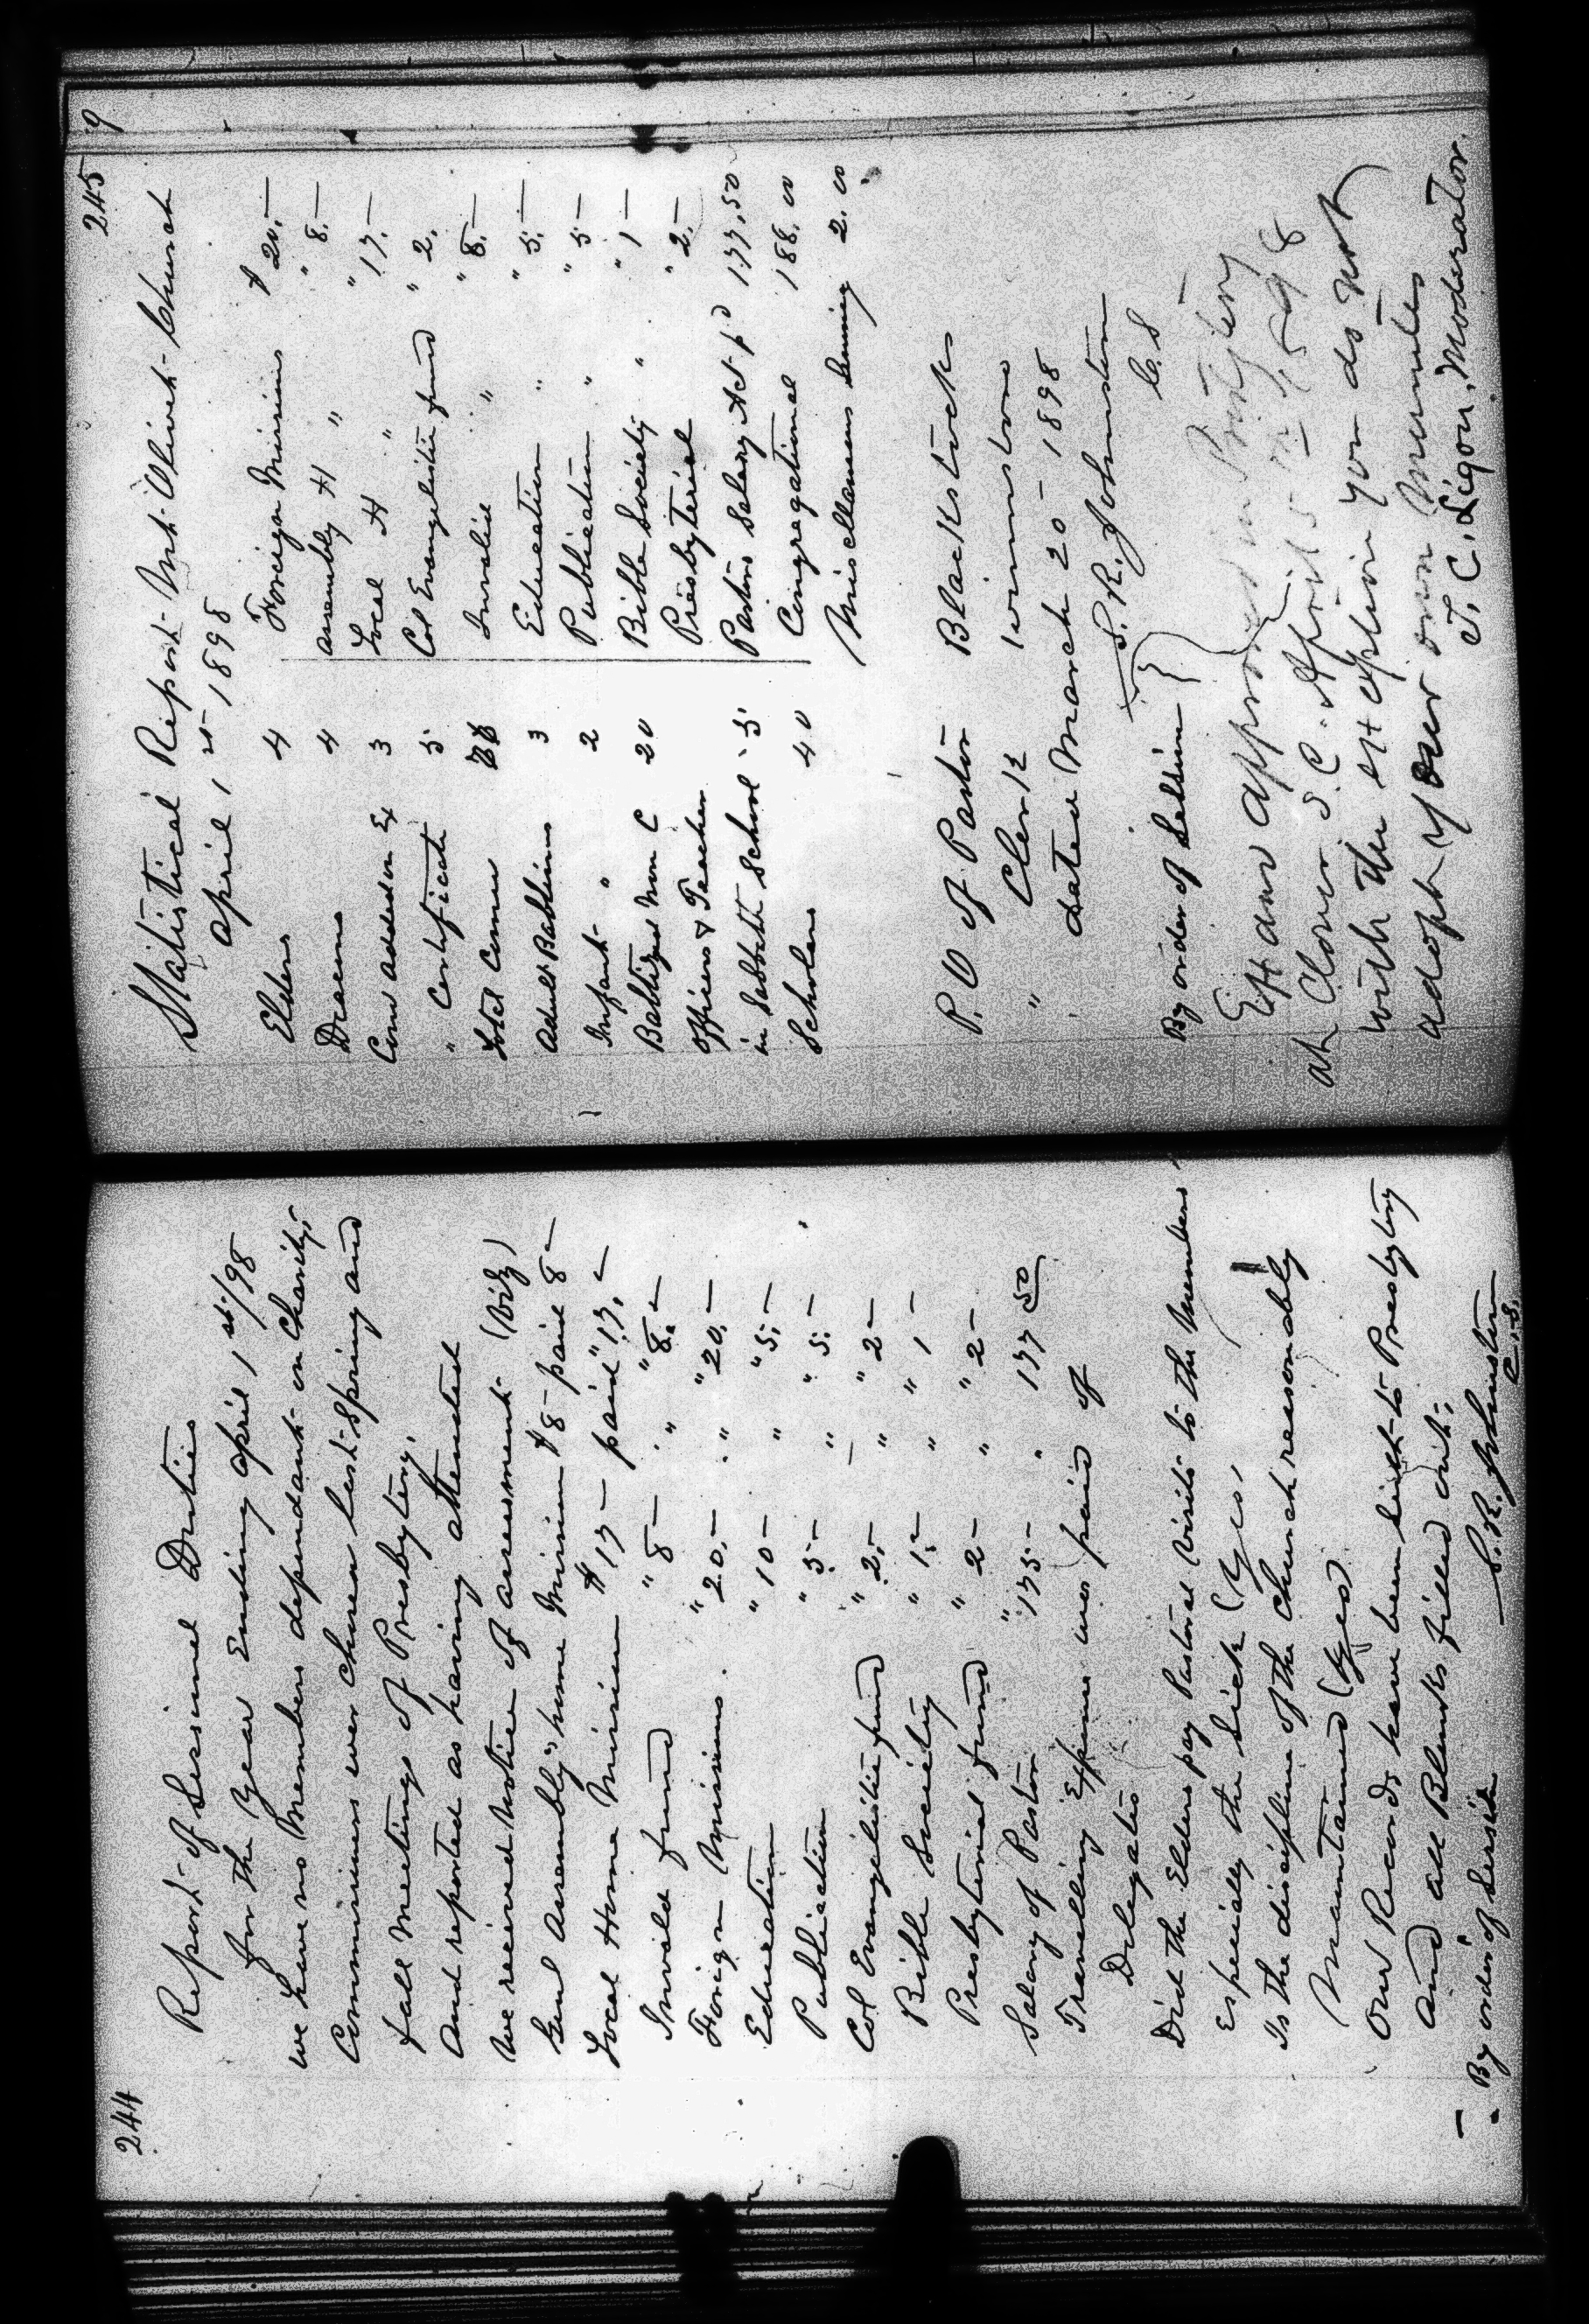 244
Report of Sessional Duties
for the Year Ending April 1st/98
we have no Members dependant on Charity,
Commissioners were chosen last Spring and
fall Meetings of Presbytery.
And reported as having attended
We received notice of assessment (Viz)
Genl Assembly's home Mission $8- paid 8-
Local Home Mission $17- paid "17.-
Invalid fund "8- " "8.-
Foreign Missions. "20.- " "20.-
Education "10- " "5.-
Publication "5- " "5.-
Col Evangelistic fund "2.- " "2-
Bible Society "1.- " "1-
Presbyterial fund "2- " "2-
Salary of Pastor "175- " 177 50
Travelling Expense was paid of
Delegates
Did the Elders pay Pastoral Visits to the Members
Especially the Sick (Yes,
Is the discipline of the Church reasonably
Maintained (Yes)
Our Records have been sent to Presbytery
And all Blanks filled out;
By order of Session S. R. Johnston
C.S.
245
9
Statistical Report Mt Olivet Church
April 1st 1898
Elders 4 Foreign Missions $20.-
Deacons 4 Assembly H " " 8.-
Com added on Ex 3 Local H " "17.-
" Certificate 5 Col Evangelistic fund " 2.
Total Comn Invalid " "8.-
Adult Baptisms 3 Education " "5.-
Infant " 2 Publication " "5-
Baptized Non C 20 Bible Society " "1-
Officers & Teacher Presbyterial "2.-
in Sabbath School 5 Pastors Salary Act pd 177.50
Scholars 40 Congregational 188.00
Miscellaneous 2.00
P.O of Pastor Blackstock
" Clerk Winnsboro
Dated March 20- 1898
S. R. Johnston
By order of Session C.S
Ex and approved in Presbytery
at Clover S.C. April 1898
with the exception you do not
adopt your own minutes
T. C. Ligon, Moderator.